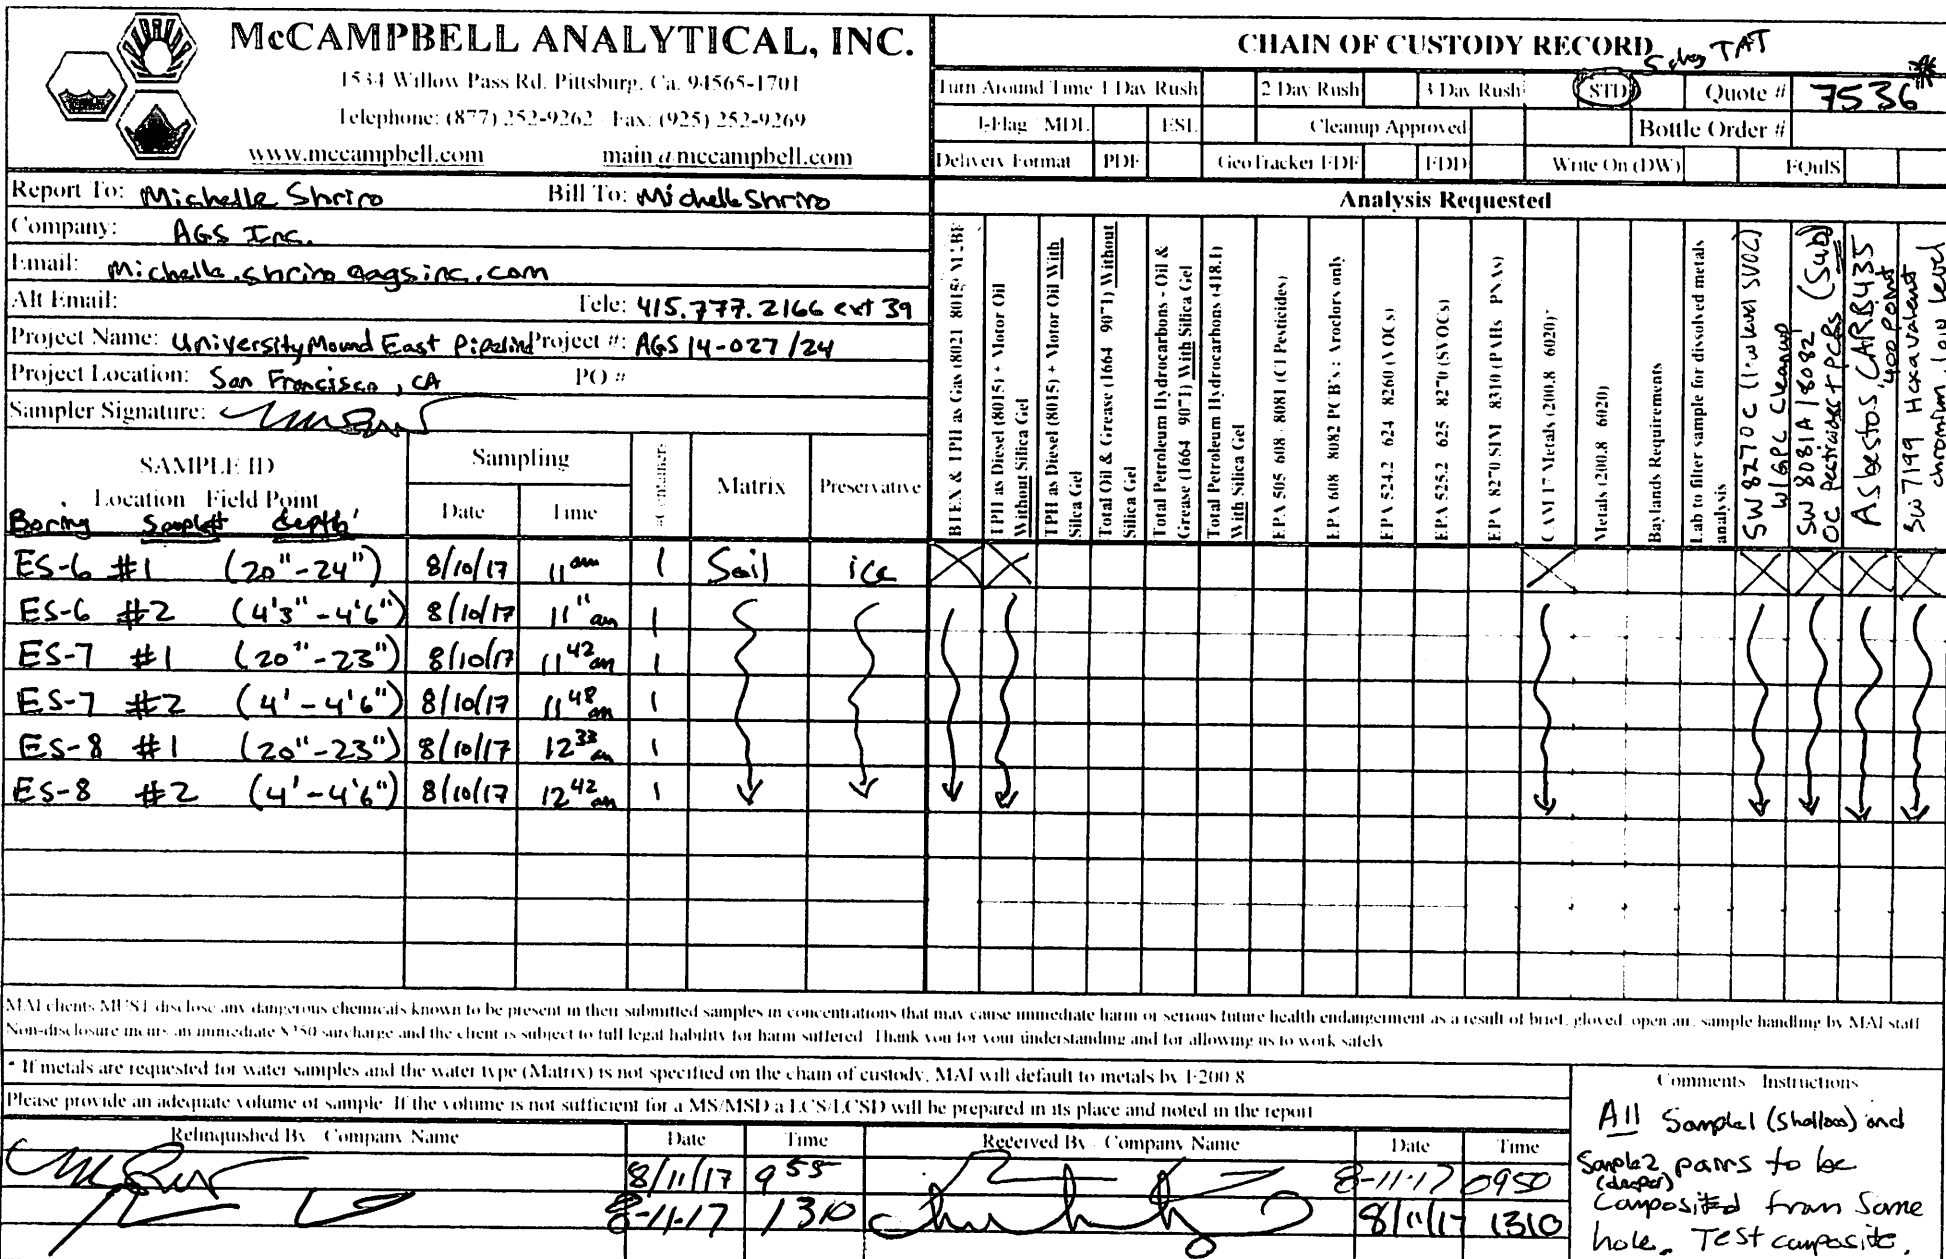 McCAMPBELL ANALYTICAL, INC.
1534 Willow Pass Rd. Pittsburg, Ca. 94565-1701
Telephone: (877) 252-9262 Fax: (925) 252-9269
www.mccampbell.com main@mccampbell.com
CHAIN OF CUSTODY RECORD
5 day TAT
Turn Around Time 1 Day Rush 2 Day Rush 3 Day Rush STD Quote # 7536 **
J-Flag MDL ESL Cleanup Approved Bottle Order #
Delivery Format PDF GeoTracker EDF EDD Write On (DW) EQuIS
Report To: Michelle Shriro Bill To: Michelle Shriro
Company: AGS Inc.
Email: Michelle.shriro@agsinc.com
Alt Email: Tele: 415.777.2166 ext 39
Project Name: University Mound East Pipeline Project #: AGS 14-027/24
Project Location: San Francisco, CA PO #
Sampler Signature:
Analysis Requested
BTEX & TPH as Gas (8021 8015) MTBE
TPH as Diesel (8015) + Motor Oil Without Silica Gel
TPH as Diesel (8015) + Motor Oil With Silca Gel
Total Oil & Grease (1664 9071) Without Silica Gel
Total Petroleum Hydrocarbons - Oil & Grease (1664 9071) With Silica Gel
Total Petroleum Hydrocarbons (418.1) With Silica Gel
EPA 505 608 8081 (Cl Pesticides)
EPA 608 8082 PCB's ; Aroclors only
EPA 524.2 624 8260 (VOCs)
EPA 525.2 625 8270 (SVOCs)
EPA 8270 SIM 8310 (PAHs PNAs)
CAM 17 Metals (200.8 6020)*
Metals (200.8 6020)
Baylands Requirements
Lab to filter sample for dissolved metals analysis
SW 8270C (low level SVOC) w/GPC Cleanup
SW 8081A/8082 (Sub) OC Pesticides + PCBs
Asbestos CARB435 400 point
SW 7199 Hexavalent chromium, low level
SAMPLE ID Sampling
Location Field Point Date Time # Containers Matrix Preservative
Boring Sample# depth'
ES-6 #1 (20"-24") 8/10/17 11 am 1 Soil ice
ES-6 #2 (4'3"-4'6") 8/10/17 11 11 am 1
ES-7 #1 (20"-23") 8/10/17 11 42 am 1
ES-7 #2 (4'-4'6") 8/10/17 11 48 am 1
ES-8 #1 (20"-23") 8/10/17 12 33 am 1
ES-8 #2 (4'-4'6") 8/10/17 12 42 am 1
MAI clients MUST disclose any dangerous chemicals known to be present in their submitted samples in concentrations that may cause immediate harm or serious future health endangerment as a result of brief, gloved, open air, sample handling by MAI staff
Non-disclosure incurs an immediate $250 surcharge and the client is subject to full legal liability for harm suffered. Thank you for your understanding and for allowing us to work safely
* If metals are requested for water samples and the water type (Matrix) is not specified on the chain of custody, MAI will default to metals by E200 8
Please provide an adequate volume of sample. If the volume is not sufficient for a MS/MSD a LCS/LCSD will be prepared in its place and noted in the report
Relinquished By Company Name Date Time Received By Company Name Date Time
8/11/17 9 55 8-11-17 0950
8-11-17 1310 8/11/17 1310
Comments Instructions
All Sample1 (shallow) and
Sample2 pairs to be
(deeper)
Composited from same
hole. Test composite.